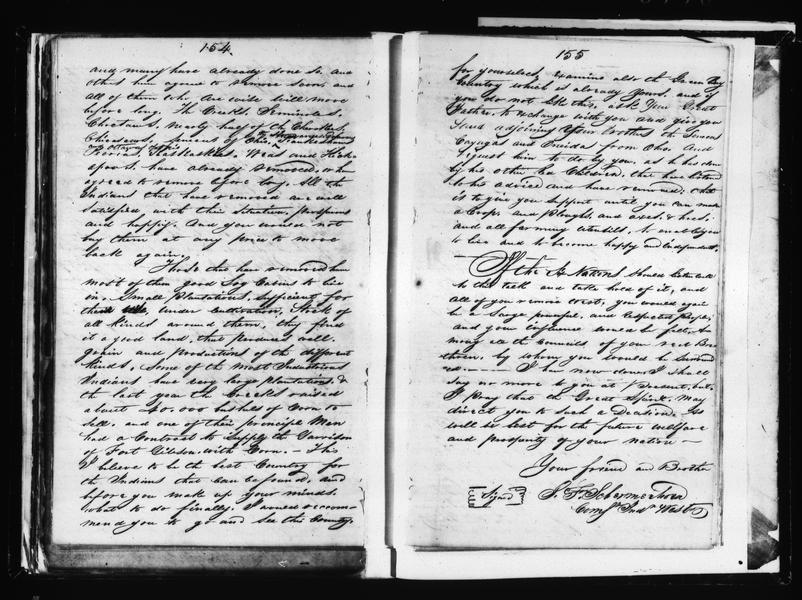 154
and many have already done so, and
others have agreed to remove soon, and
all of them who are wise will move
before long. The Creeks, Seminoles,
Choctaws, nearly half of the Cherokees,
Chicasaws, Senecas of Ohio,
Peorias, Kaskaskias, Weas and Kick-
apoos. have already removed, or have
agreed to remove before long. All the
Indians that have removed are well
satisfied with their situation, prosperous
and happy. And you would not
buy them at any price to move
back again.
Those that have removed have
most of them good Log Cabins to live
in. Small plantations, sufficient for
them under cultivation, Stock of
all kinds around them, they find
it a good land, that produces well.
grain and productions of the different
kinds. Some of the most Industrious
Indians have very large plantations. &
the last year the Creeks raised
about 40.000 bushels of Corn to
sell. and one of their principle Men
had a Contract to Supply the Garrison
of Fort Gibson. with Corn. - This
I believe to be the best Country for
the Indians that can be found, and
before you make up your minds.
what to do finally. I would recom-
mend you to go and see this Country.
155
for yourselves, examine also the Green Bay
Country which is already yours. and if
you do not like this, ask your Great
Father, to exchange with you and give you
lands adjoining your brothers the Seneca
Cayugas and Oneida from Ohio. And
request him to do by you, as he has done
by his other red Children, that have listened
to his advice and have removed: that
is to give you support until you can make
a Crop. and ploughs, and axes, & hoes,
and all farming utensils, to enable you
to live and to become happy and independent.
If the Six Nations should listen
to this talk and take hold of it, and
all of you remove west, you would again
be a large powerful and respected people,
and your influence would be felt, &
may be the councils of your red Bre
thren. by whom you would be surround
ed. I am now done. I shall
say no more to you at present, but
I pray that the Great Spirit. may
direct you to such a Decision. as
will be best for the future wellfare
and prosperity of your nation -
Your friend and Brother
Signed J. F. Schermerhorn
Comr. Ind. West